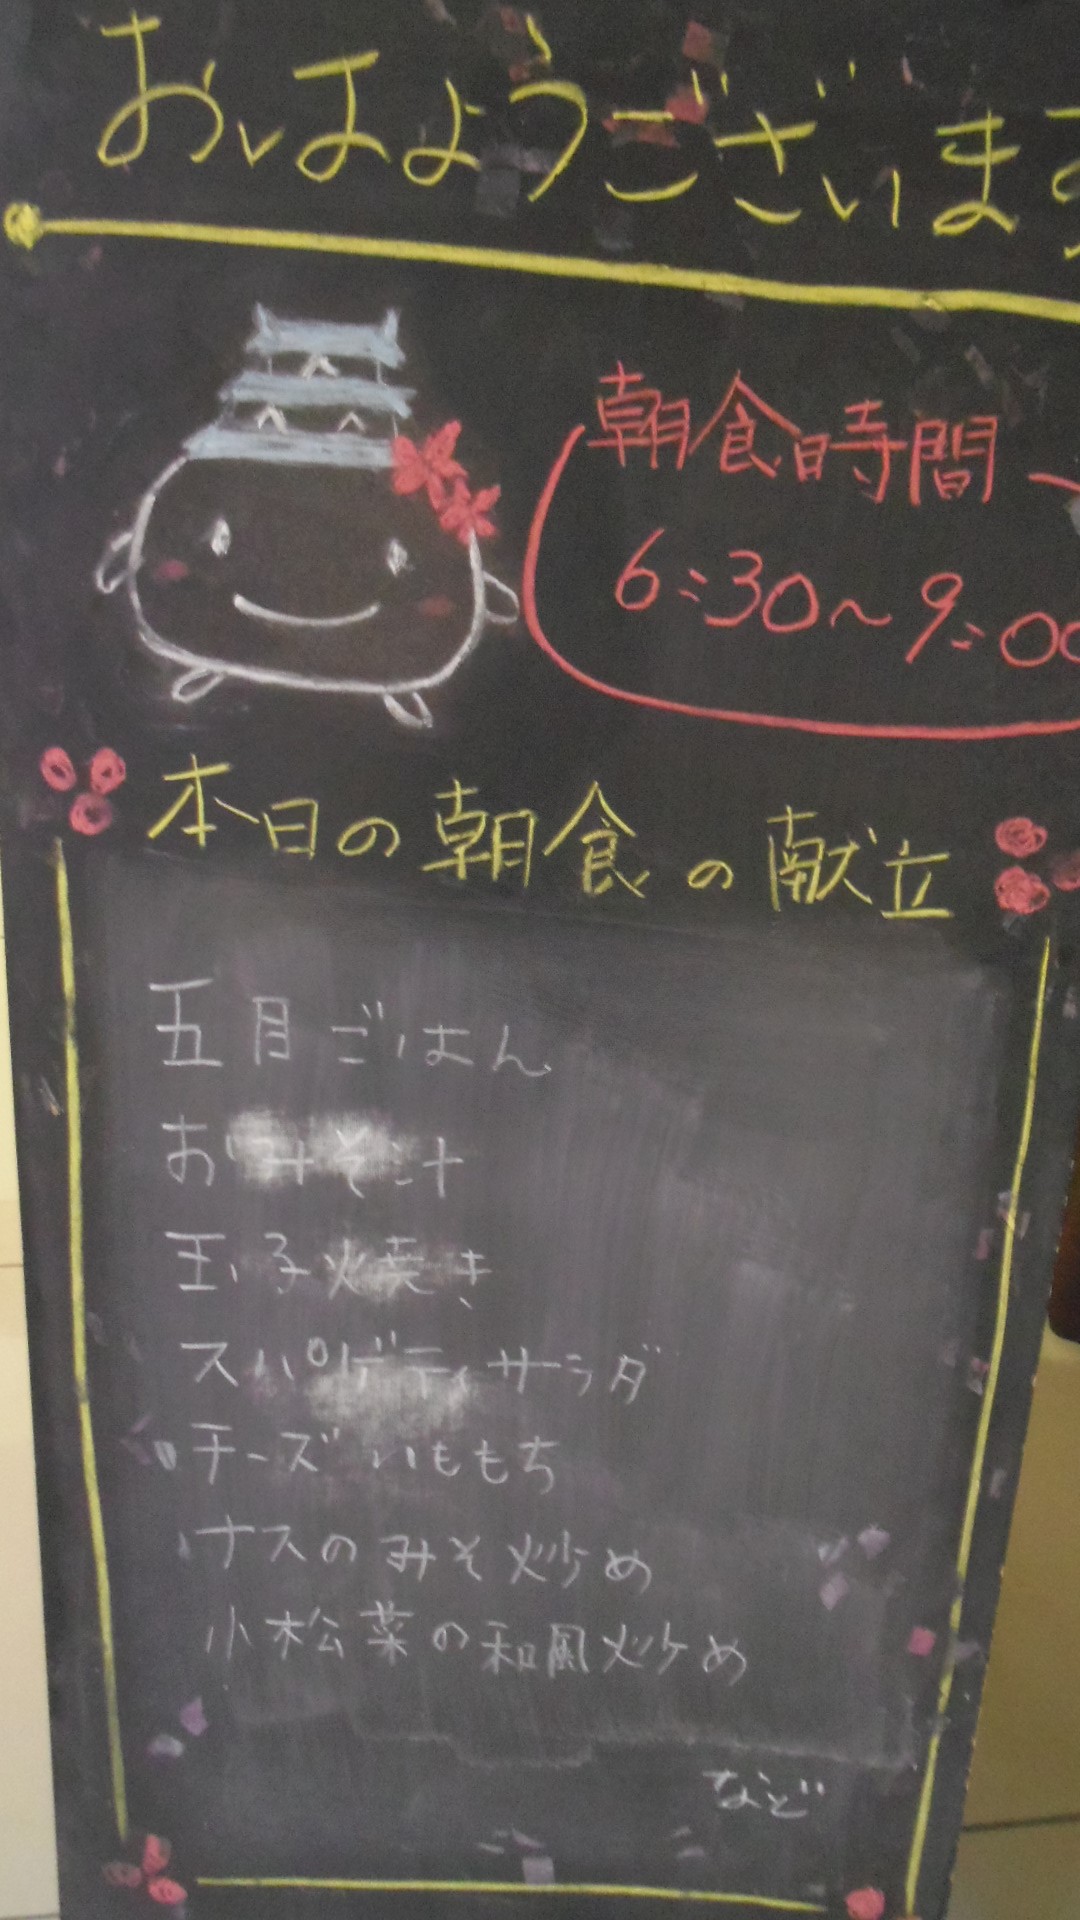 おはようございます
朝食時間
6:30~9:00
本日の朝食の献立
五目ごはん
おみそ汁
玉子焼き
スパゲティサラダ
チーズいももち
ナスのみそ炒め
小松菜の和風炒め
など